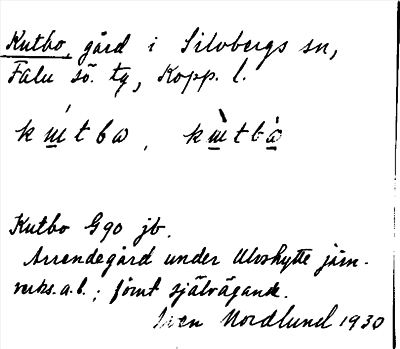 Kutbo, gård i Silvbergs sn,
Falu sö. tg, Kopp. l.
Kutbo G90 jb.
Arrendegård under Ulvshytte järn-
verks.a.b.; förut självägande.
Sven Nordlund 1930